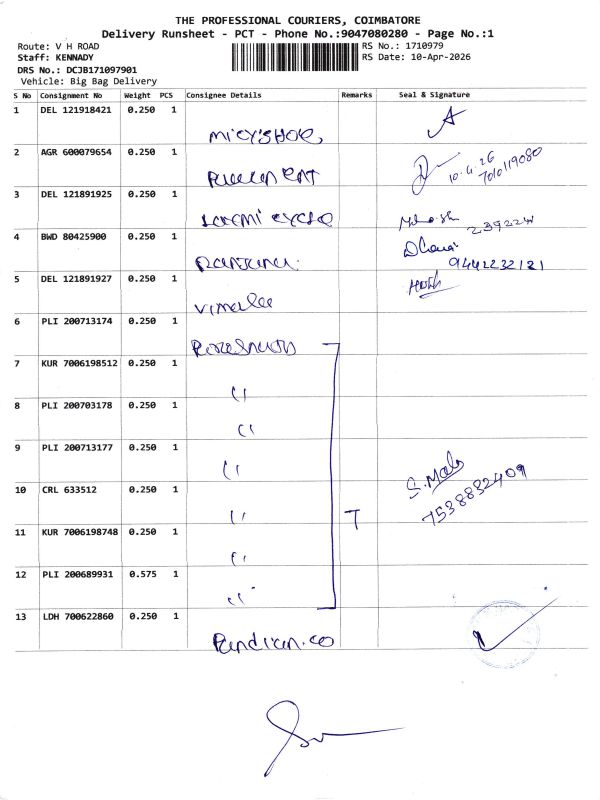 THE PROFESSIONAL COURIERS, COIMBATORE
Delivery Runsheet - PCT - Phone No.:9047080280 - Page No.:1
Route: V H ROAD RS No.: 1710979
Staff: KENNADY RS Date: 10-Apr-2026
DRS No.: DCJB171097901
Vehicle: Big Bag Delivery
S No Consignment No Weight PCS Consignee Details Remarks Seal & Signature
1 DEL 121918421 0.250 1
2 AGR 600079654 0.250 1
10.4.26
7010119080
3 DEL 121891925 0.250 1
4 BWD 80425900 0.250 1
9442232121
5 DEL 121891927 0.250 1
Vimalee
6 PLI 200713174 0.250 1
7 KUR 7006198512 0.250 1
"
8 PLI 200703178 0.250 1
"
9 PLI 200713177 0.250 1
"
10 CRL 633512 0.250 1
7538832409
" T
11 KUR 7006198748 0.250 1
"
12 PLI 200689931 0.575 1
"
13 LDH 700622860 0.250 1
Pandian.co